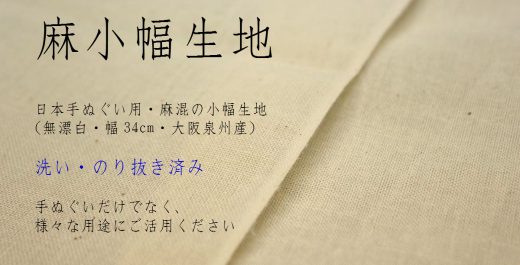 麻小幅生地
日本手ぬぐい用・麻混の小幅生地
(無漂白・幅34cm・大阪泉州産)
洗い・のり抜き済み
手ぬぐいだけでなく、
様々な用途にご活用ください